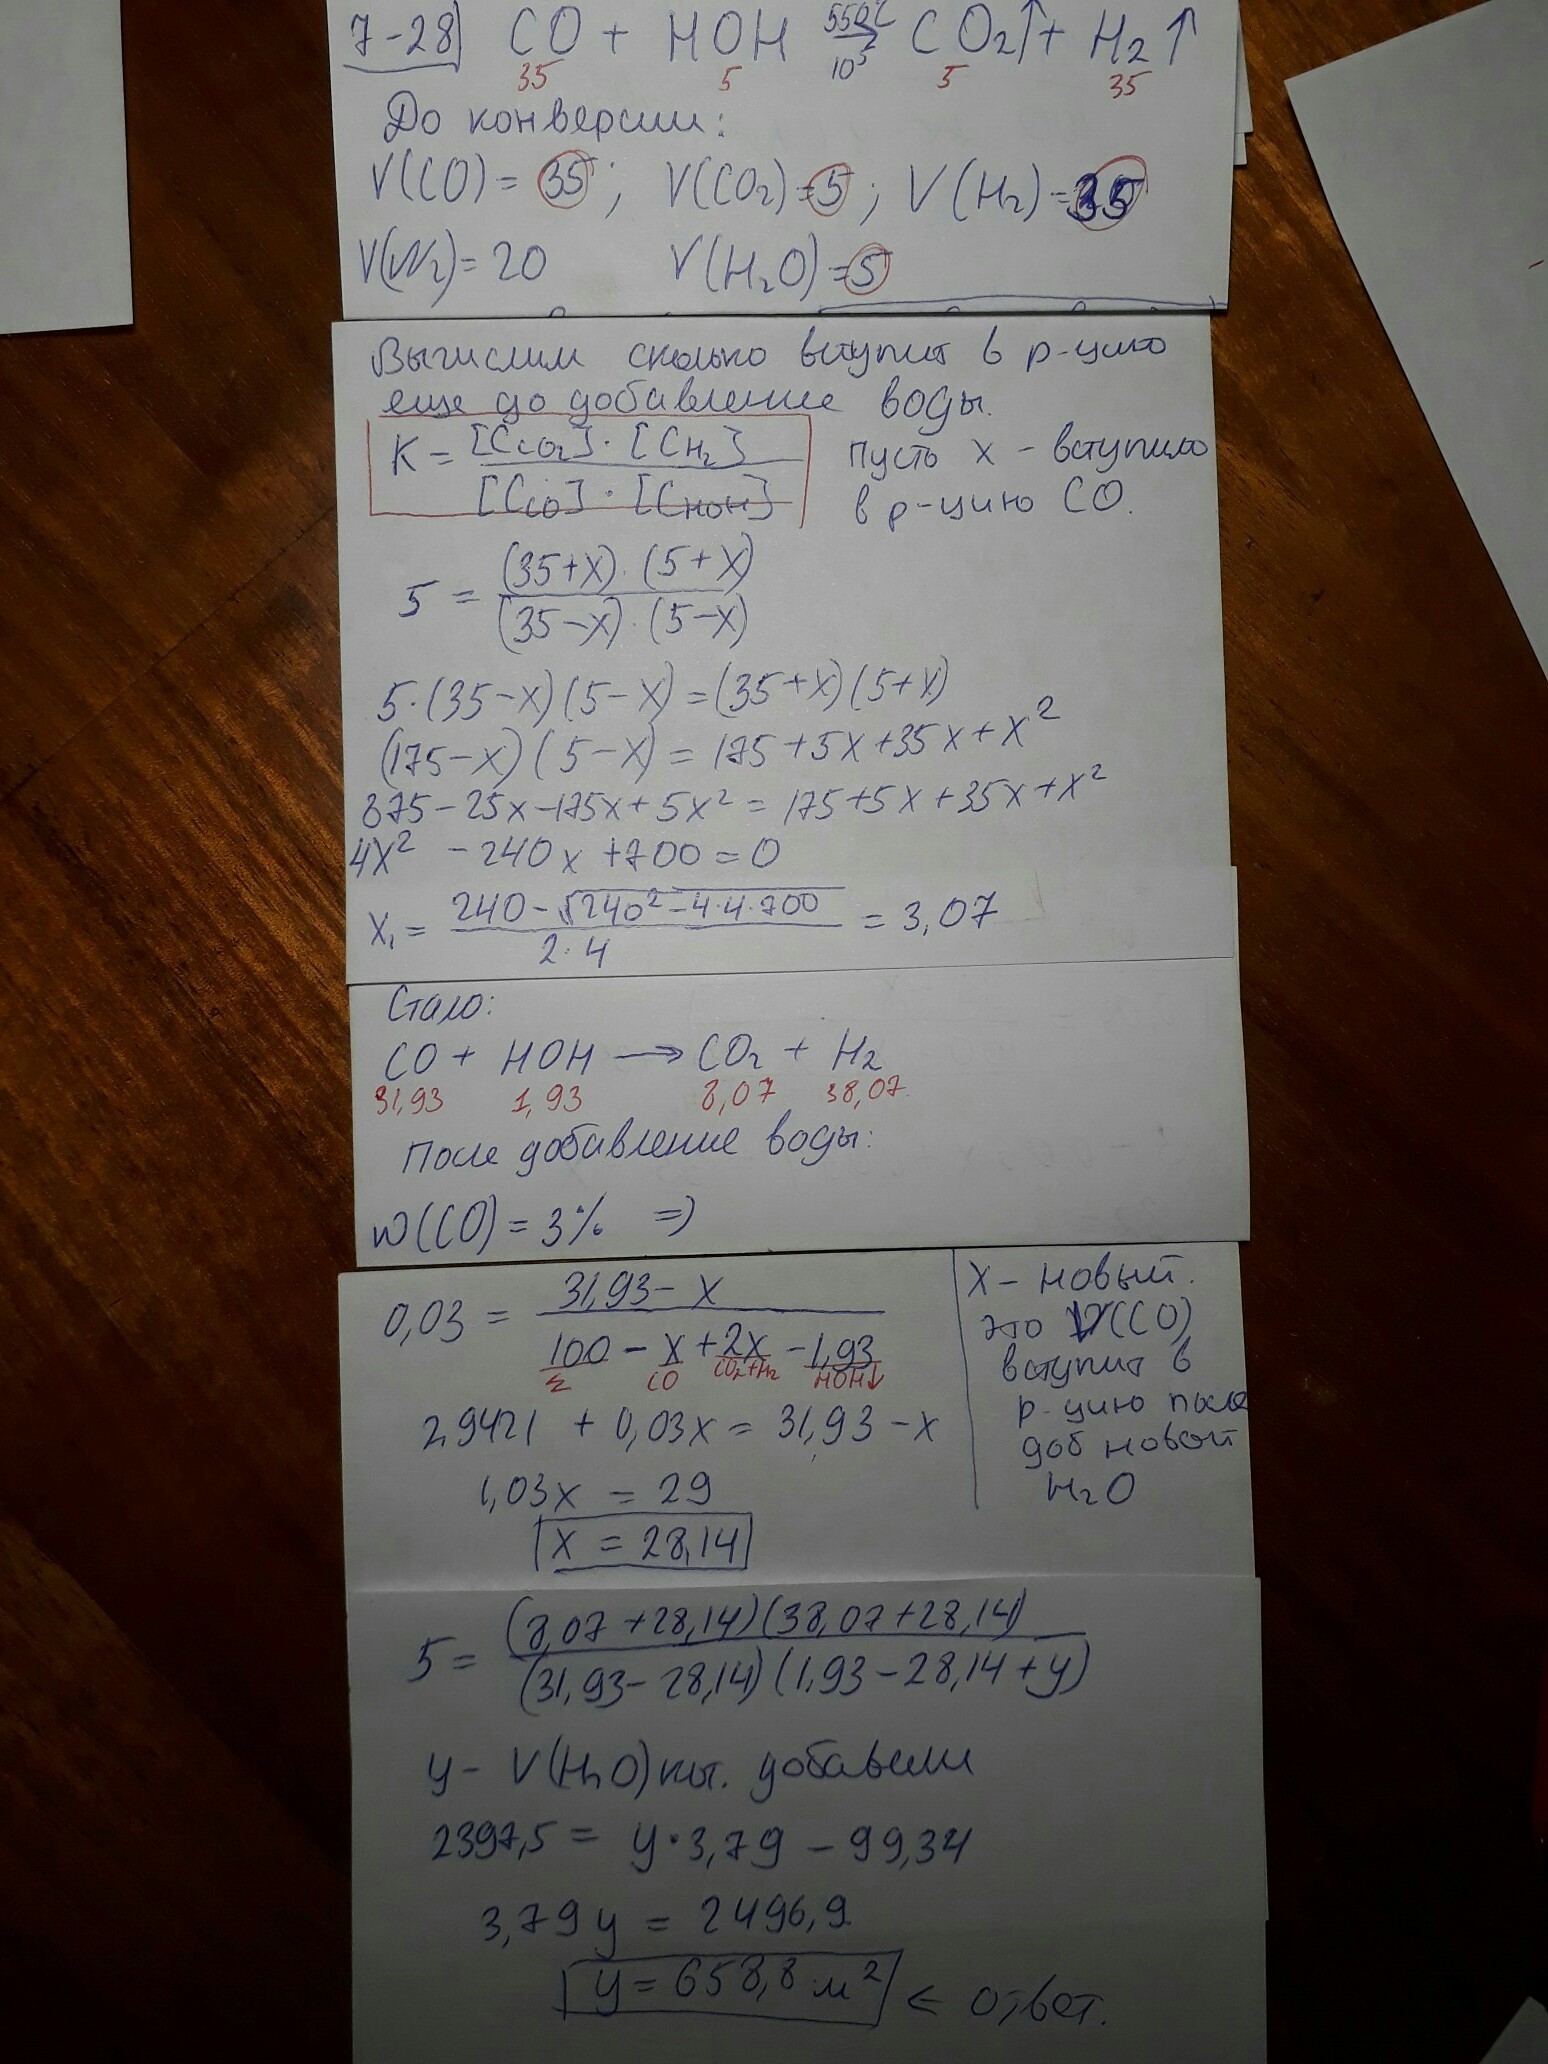 7-28) CO + HOH 550°C ⇄ 10⁵ CO₂↑ + H₂↑
35 5 5 35
До конверсии:
V(CO) = 35 ; V(CO₂) = 5 ; V(H₂) = 35
V(N₂) = 20 V(H₂O) = 5
Вычислим сколько вступит в р-цию
еще до добавление воды.
K = [Cco₂] · [CH₂] / [Cco] · [CHOH]
пусть x - вступило
в р-цию CO.
5 = (35+x) · (5+x) / (35-x) · (5-x)
5·(35-x)(5-x) = (35+x)(5+x)
(175-x)(5-x) = 175+5x+35x+x²
875-25x-175x+5x² = 175+5x+35x+x²
4x² - 240x + 700 = 0
x₁ = 240-√240²-4·4·700 / 2·4 = 3,07
Стало:
CO + HOH → CO₂ + H₂
31,93 1,93 8,07 38,07
После добавление воды:
ω(CO) = 3% ⇒
0,03 = 31,93 - x / 100 - x + 2x - 1,93
Σ CO CO₂+H₂ HOH↓
x - новый.
это V(CO)
вступит в
р-цию после
доб новой
H₂O
2,9421 + 0,03x = 31,93 - x
1,03x = 29
x = 28,14
5 = (8,07+28,14)(38,07+28,14) / (31,93-28,14)(1,93-28,14+y)
y - V(H₂O) добавили
2397,5 = y·3,79 - 99,34
3,79y = 2496,9
y = 658,8 м² ← ответ.